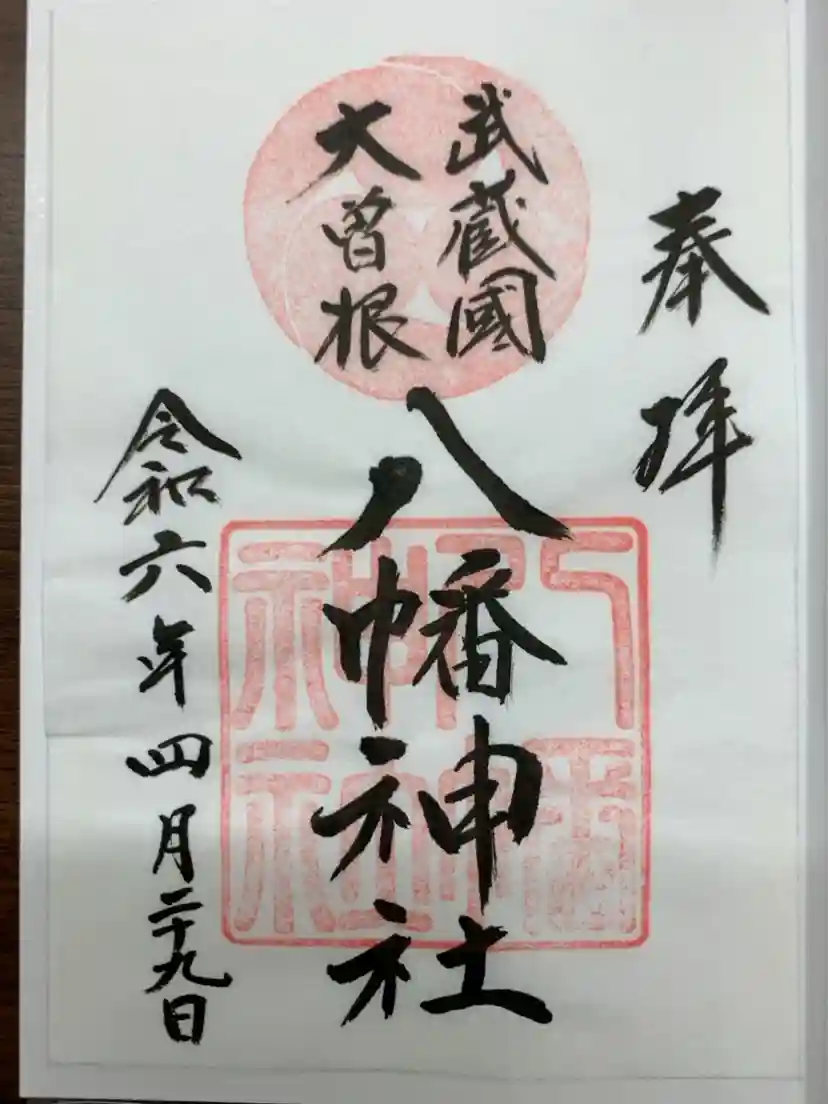 奉拝
武蔵國
大曽根
八幡神社
令和六年四月二十九日
八幡神社